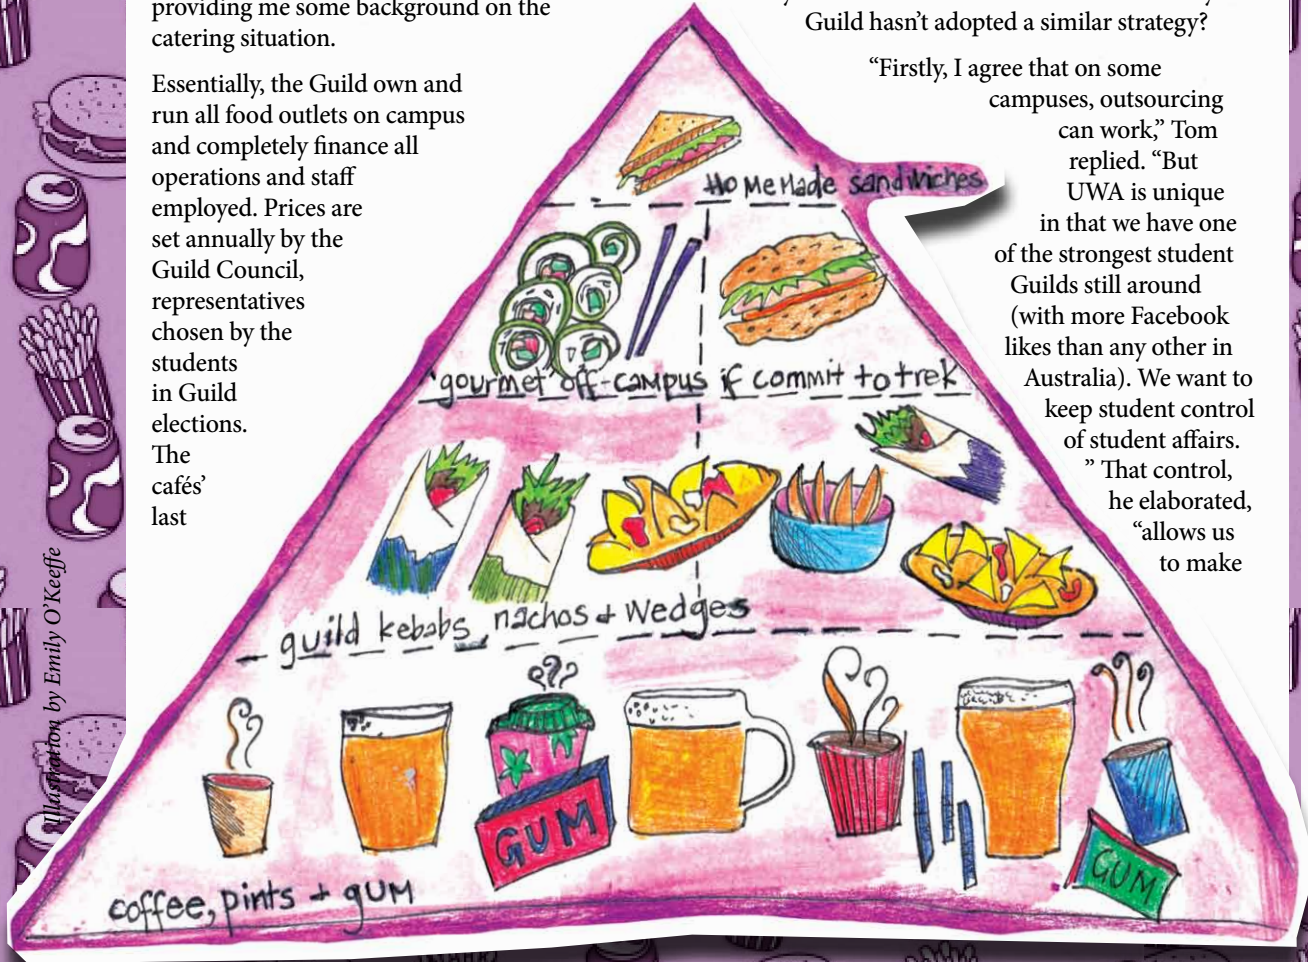 providing me some background on the
catering situation.
Essentially, the Guild own and
run all food outlets on campus
and completely finance all
operations and staff
employed. Prices are
set annually by the
Guild Council,
representatives
chosen by the
students
in Guild
elections.
The
cafés’
last
Guild hasn’t adopted a similar strategy?
“Firstly, I agree that on some
campuses, outsourcing
can work,” Tom
replied. “But
UWA is unique
in that we have one
of the strongest student
Guilds still around
(with more Facebook
likes than any other in
Australia). We want to
keep student control
of student affairs.
” That control,
he elaborated,
“allows us
to make
HoMeMade sandwiches
'gourmet' off-campus if commit to trek
guild kebabs, nachos + wedges
GUM
GUM
coffee, pints + gUM
Illustration by Emily O’Keeffe